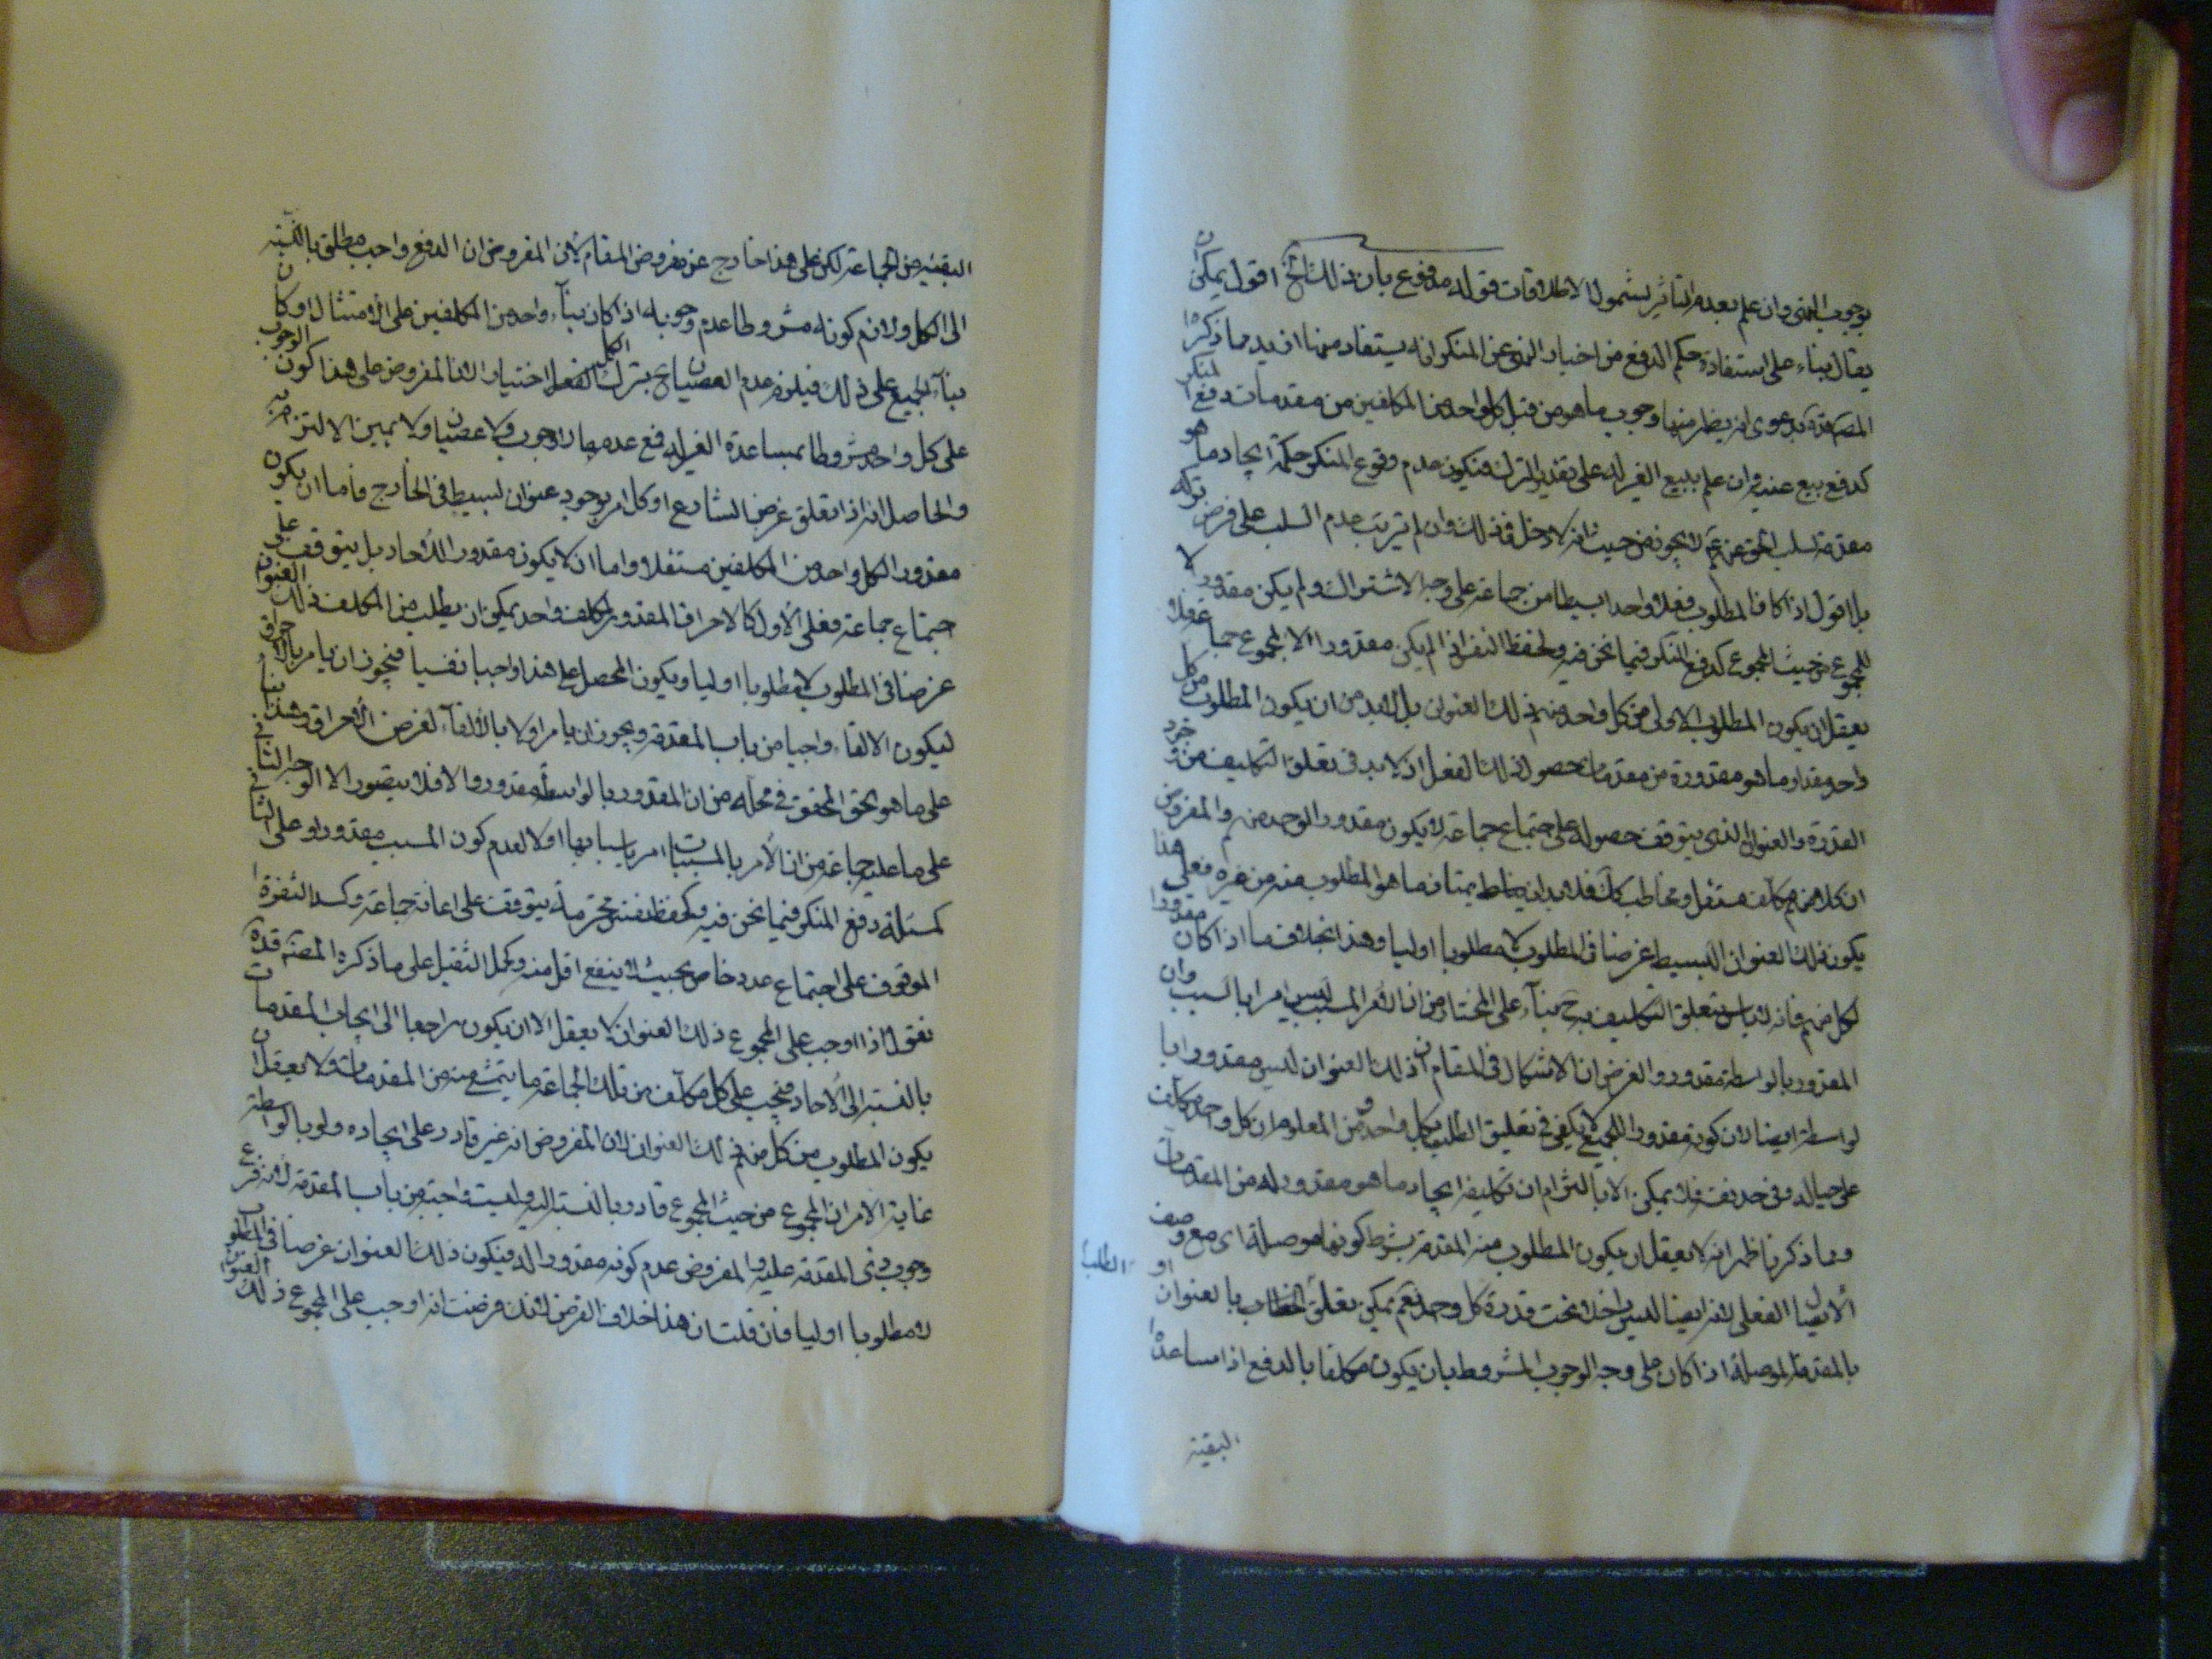 بوجوب النهى وان علم بعدم التأثير لشمول الاطلاقات قوله مدفوع بان ذلك الخ اقول يمكن ان
يقال بناء على استفادة حكم الدفع من اخبار النهى عن المنكر انه يستفاد منها ازيد مما ذكره
المصنف قده بدعوى انه يظهر منها وجوب ما هو من قبل كل واحد من المكلفين من مقدمات دفع المنكر
كدفع بيع عنبه وان علم ببيع الغير له على تقدير الترك فيكون عدم وقوع المنكر حكمة ايجاد ما هو
مقدمة لسلب الخ من حيث انه لا دخل فى ذلك وان لم يترتب عدم السلب على فرض تركه
بل اقول اذا كان المطلوب فعلا واحدا بسيطا من جماعة على وجه الاشتراك ولم يكن مقدورا الا
للمجموع من حيث المجموع كدفع المنكر فيما نحن فيه ولحفظ النفس اذا لم يكن مقدورا الا لمجموع جماعة فلا
يعقل ان يكون المطلوب الاولى من كل واحد منهم ذلك العنوان بل لابد من ان يكون المطلوب من كل
واحد مقدار ما هو مقدوره من مقدمات حصول ذلك الفعل اذ لا بد فى تعلق التكليف من وجود
القدرة والعنوان الذى يتوقف حصوله على اجتماع جماعة لا يكون مقدورا لواحد منهم والمفروض
ان كلا منهم مكلف مستقل ومخاطب كك فلا بد ان يخاطب بما هو المطلوب منه من غيره فعلى هذا
يكون ذلك العنوان البسيط غرضا فى المطلوب لا مطلوبا اوليا وهذا بخلاف ما اذا كان مقدورا
لكل منهم فانه لا باس بتعلق التكليف به ح بناء على المختار من ان الامر بالمسبب ليس امرا بالسبب وان
المقدور بالواسطة مقدور والغرض ان الاشكال فى المقام ان ذلك العنوان ليس مقدورا بالواسطة
لواسطة ايضا لان كونه مقدورا للجميع لا يكفى فى تعليق الطلب بكل واحد ومن المعلوم ان كل واحد مكلف
على حياله وفى حد نفسه فلا يمكن الا بالتزام ان تكليفه ايجاد ما هو مقدور له من المقدمات
ومما ذكرنا ظهر انه لا يعقل ان يكون المطلوب منه المقدمة بشرط كونها موصلة اى مع وصف
الايصال الفعلى لانه ايضا ليس داخلا تحت قدرة كل واحد نعم يمكن تعلق الخطاب بالعنوان او
الطلب
بالمقدمة الموصلة اذا كان على وجه الوجوب المشروط بان يكون مكلفا بالدفع اذا ساعده
البقية
البقية من الجماعة لكن على هذا خارج عن مفروض المقام لان المفروض ان الدفع واجب مطلق بالنسبة
الى الكل ولازم كونه مشروطا عدم وجوبه اذا كان بناء واحد من المكلفين على الامتثال او كان
بناء الجميع على ذلك فيلزم عدم العصيان ح بترك الكل لفعل اختيارا اذ المفروض على هذا كون الوجوب
على كل واحد مشروطا بمساعدة الغير له فمع عدمها لا وجوب ولا عصيان ولا يمكن الالتزام به
والحاصل انه اذا تعلق غرض الشارع او كل امر بوجود عنوان بسيط فى الخارج فاما ان يكون
مقدورا لكل واحد من المكلفين مستقلا واما ان لا يكون مقدورا للآحاد بل يتوقف على
اجتماع جماعة فعلى الاول كالاحراق المقدور لمكلف واحد يمكن ان يطلب من المكلف ذلك العنوان
غرضا فى المطلوب لا مطلوبا اوليا ويكون المحصل على هذا واجبا نفسيا فيجوز ان يامر بالاحراق
ليكون الالقاء واجبا من باب المقدمة ويجوز ان يامر اولا بالالقاء لغرض الاحراق وهذا بناء
على ما هو الحق المحقق فى محله من ان المقدور بالواسطة مقدور والا فلا يتصور الا الوجه الثانى
على ما عليه جماعة من ان الامر بالمسببات امر باسبابها اولا لعدم كون المسبب مقدورا وعلى الثانى
كمسئلة دفع المنكر فيما نحن فيه وكحفظ نفس محترمة يتوقف على اعانة جماعة وكسد الثغرة
الموقوف على اجتماع عدد خاص بحيث لا ينفع اقل منه وكحمل الثقيل على ما ذكره المصنف قده
نقول اذا اوجب على المجموع ذلك العنوان لا يعقل الا ان يكون راجعا الى ايجاب المقدمات
بالنسبة الى الآحاد فيجب على كل مكلف من تلك الجماعة ما يتمشى منه من المقدمات ولا يعقل ان
يكون المطلوب من كل منهم ذلك العنوان لان المفروض انه غير قادر على ايجاده ولو بالواسطة
غاية الامر ان المجموع من حيث المجموع قادر بالنسبة اليه وليست واجبة من باب المقدمة لانه فرع
وجوب ذى المقدمة عليه والمفروض عدم كونه مقدورا له فيكون ذلك العنوان غرضا فى المطلوب
لا مطلوبا اوليا فان قلت ان هذا خلاف الفرض لانك فرضت انه اوجب على المجموع ذلك العنوان